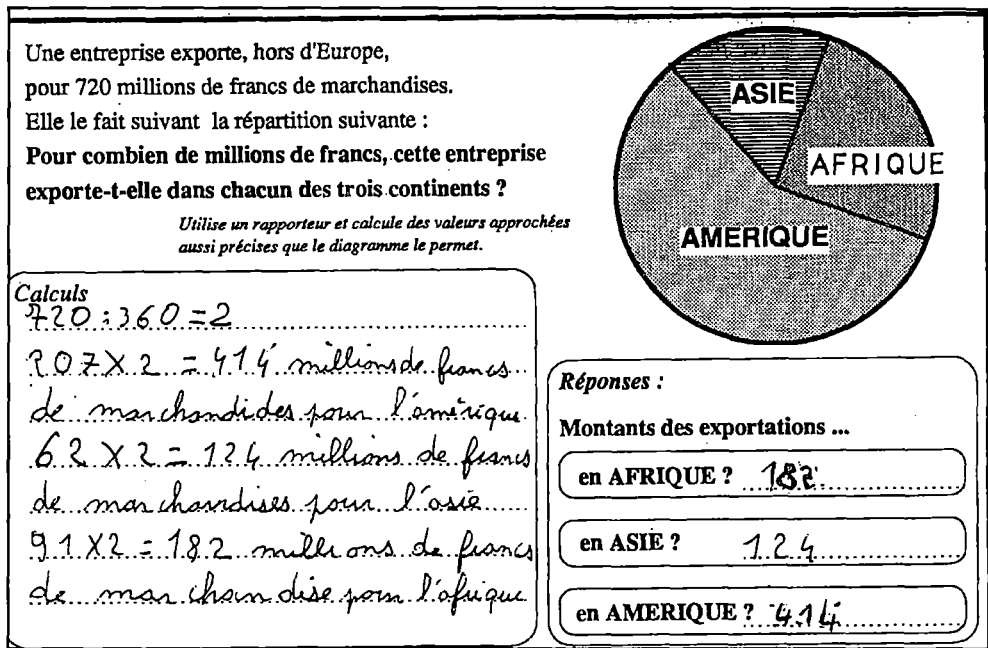 Une entreprise exporte, hors d'Europe,
pour 720 millions de francs de marchandises.
Elle le fait suivant la répartition suivante :
Pour combien de millions de francs, cette entreprise
exporte-t-elle dans chacun des trois continents ?
Utilise un rapporteur et calcule des valeurs approchées
aussi précises que le diagramme le permet.
ASIE
AFRIQUE
AMERIQUE
Calculs
720 : 360 = 2
207 X 2 = 414 millions de francs
de marchandides pour l'amérique
62 X 2 = 124 millions de francs
de marchandises pour l'asie
91 X 2 = 182 millions de francs
de marchandise pour l'afrique
Réponses :
Montants des exportations ...
en AFRIQUE ? 182
en ASIE ? 124
en AMERIQUE ? 414